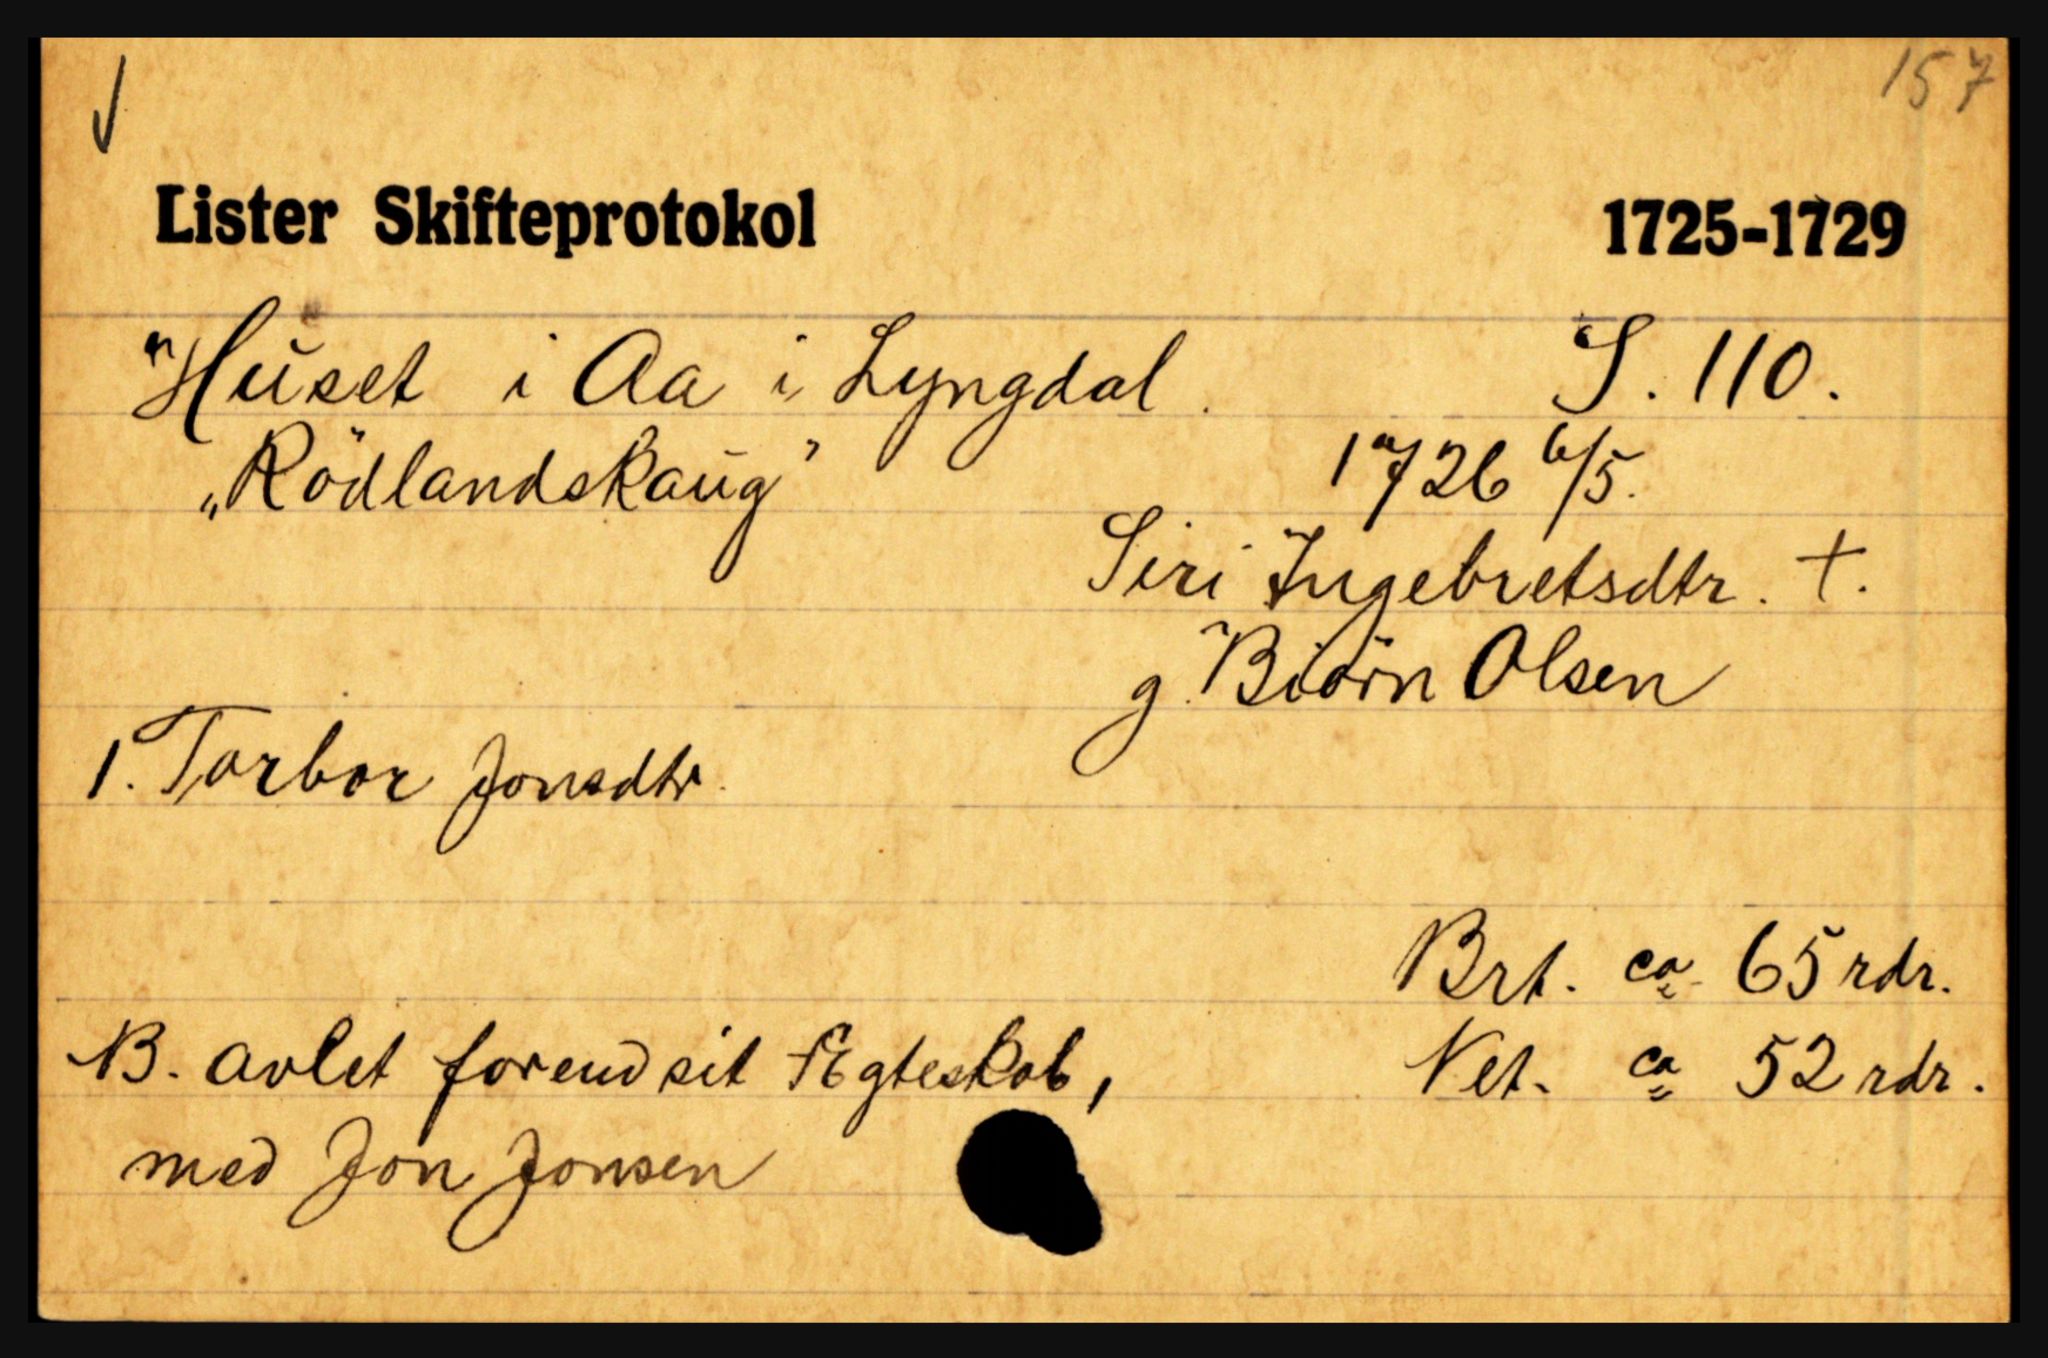 157
Lister Skifteprotokol 1725-1729
Huset i Aa i Lyngdal. S. 110.
„Rödlandskaug" 1726 6/5.
Siri Ingebretsdtr. †.
g. Biörn Olsen
1. Torbor Jonsdtr.
Brt. ca 65 rdr.
NB. avlet forend sit Ægteskab, Net. ca 52 rdr.
med Jon Jonsen